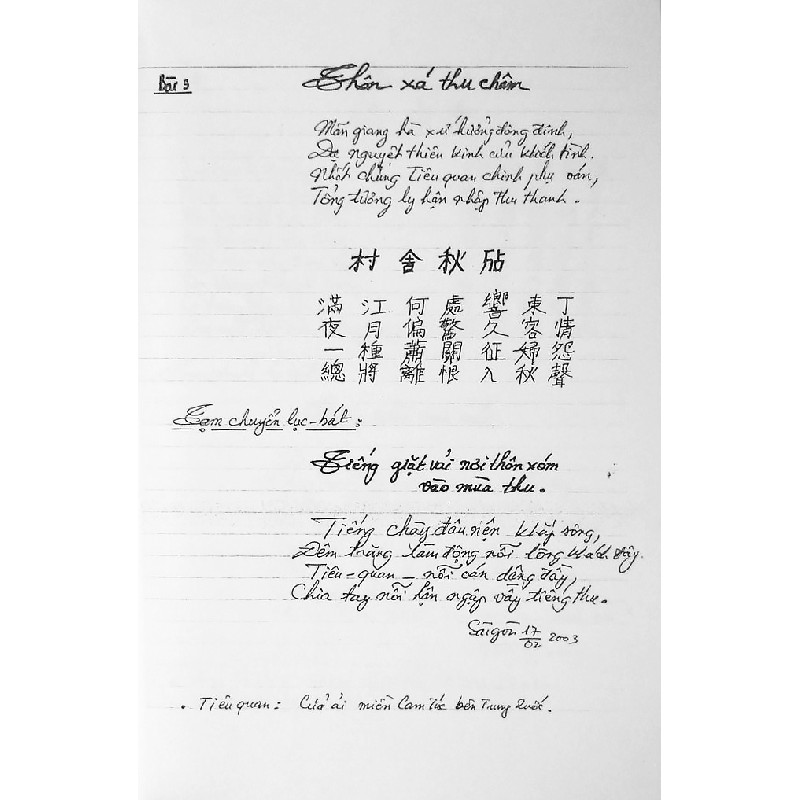 Bài 3
Thôn xá thu châm
Mãn giang hà xứ hưởng đông đinh,
Dạ nguyệt thiên kinh cửu khách tình.
Nhất chủng Tiêu quan chinh phụ oán,
Tổng tương ly hận nhập thu thanh.
村舍秋砧
滿江何處響東丁
夜月偏驚久客情
一種蕭關征婦怨
總將離恨入秋聲
Tạm chuyển lục-bát:
Tiếng giặt vải nơi thôn xóm
vào mùa thu.
Tiếng chày đâu rộn khắp sông,
Đêm trăng làm động nỗi lòng khách đây.
Tiêu-quan - nỗi oán dâng đầy,
Chia tay nỗi hận ngập vầy tiếng thu.
Sàigòn 17/02 2003
. Tiêu quan: Cửa ải miền Cam Túc bên Trung Quốc.